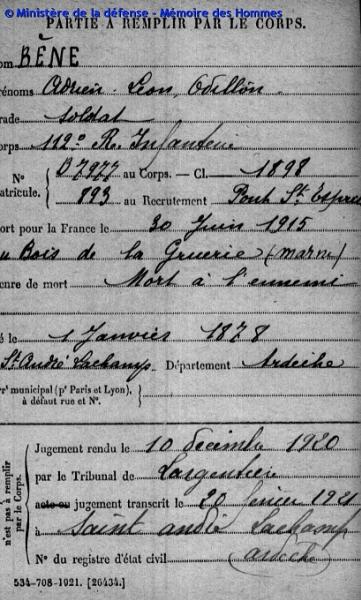 © Ministère de la défense - Mémoire des Hommes
PARTIE À REMPLIR PAR LE CORPS.
om BÈNE
rénoms Adrien Léon Odillon
rade soldat
orps 112e R. Infanterie
N° 07977 au Corps. — Cl. 1898
atricule. 893 au Recrutement Pont St Esprit
ort pour la France le 30 Juin 1915
u Bois de la Gruerie (Marne)
enre de mort Mort à l'ennemi
é le 1 Janvier 1878
St André Lachamp Département Ardèche
r' municipal (p' Paris et Lyon),
à défaut rue et N°.
n'est pas à remplir
par le Corps.
Jugement rendu le 10 décembre 1920
par le Tribunal de Largentière
acte ou jugement transcrit le 20 février 1921
à Saint André Lachamp
ardèche
N° du registre d'état civil
534-708-1921. [26434.]